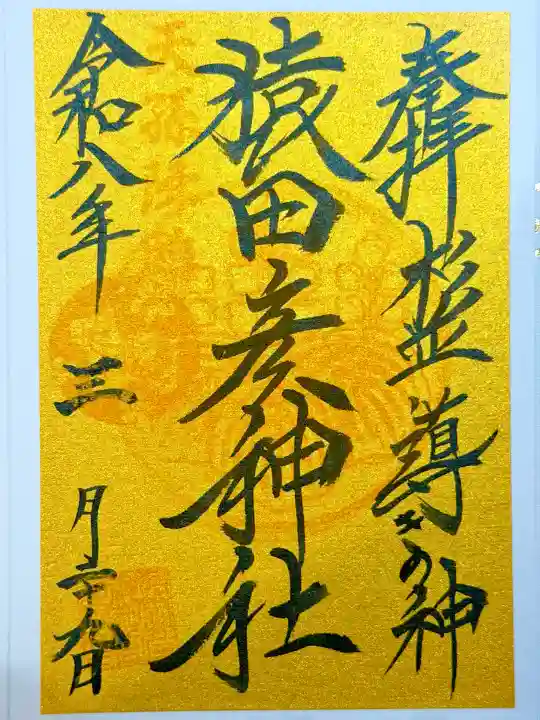 奉拝 杉並 導きの神
猿田彦神社
令和八年三月廿九日